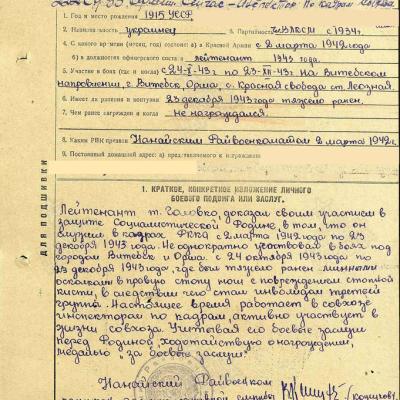 Сейчас - инспектор по кадрам совхоза
1. Год и место рождения 1915 УССР
2. Национальность украинец 3. Партийность чл. ВЛКСМ с 1934г.
4. С какого времени (месяц, год) состоит: а) в Красной Армии с 2 марта 1942 года
б) в должностях офицерского состава лейтенант 1943 года.
5. Участие в боях (где и когда) с 24-X-43г. по 23-XII-43г. на Витебском
направлении, г. Витебск, Орша, с. Красная свобода ст. Лесдная.
6. Имеет ли ранения и контузии 23 декабря 1943 года тяжело ранен.
7. Чем ранее награжден и когда не награждался.
8. Каким РВК призван Нанайским Райвоенкоматом 2 марта 1942 г.
9. Постоянный домашний адрес: а) представляемого к награждению
ДЛЯ ПОДШИВКИ
1. КРАТКОЕ, КОНКРЕТНОЕ ИЗЛОЖЕНИЕ ЛИЧНОГО
БОЕВОГО ПОДВИГА ИЛИ ЗАСЛУГ.
Лейтенант т. Головко, доказал своим участием в
защите Социалистической Родине, в том, что он
служил в кадрах РККА с 2 марта 1942 года по 23
декабря 1943 года. Неоднократно участвовал в боях под
городом Витебск и Орша. с 24 октября 1943 года по
23 декабря 1943 года, где был тяжело ранен минными
осколками в правую стопу ноги с повреждением стопной
кисти, в следствии чего стал инвалидом третьей
группы. Настоящее время работает в совхозе
инспектором по кадрам, активно участвует в
жизни совхоза. Учитывая его боевые заслуги
перед Родиной, ходатайствую о награждении,
медалью "за боевые заслуги".
Нанайский Райвоенком